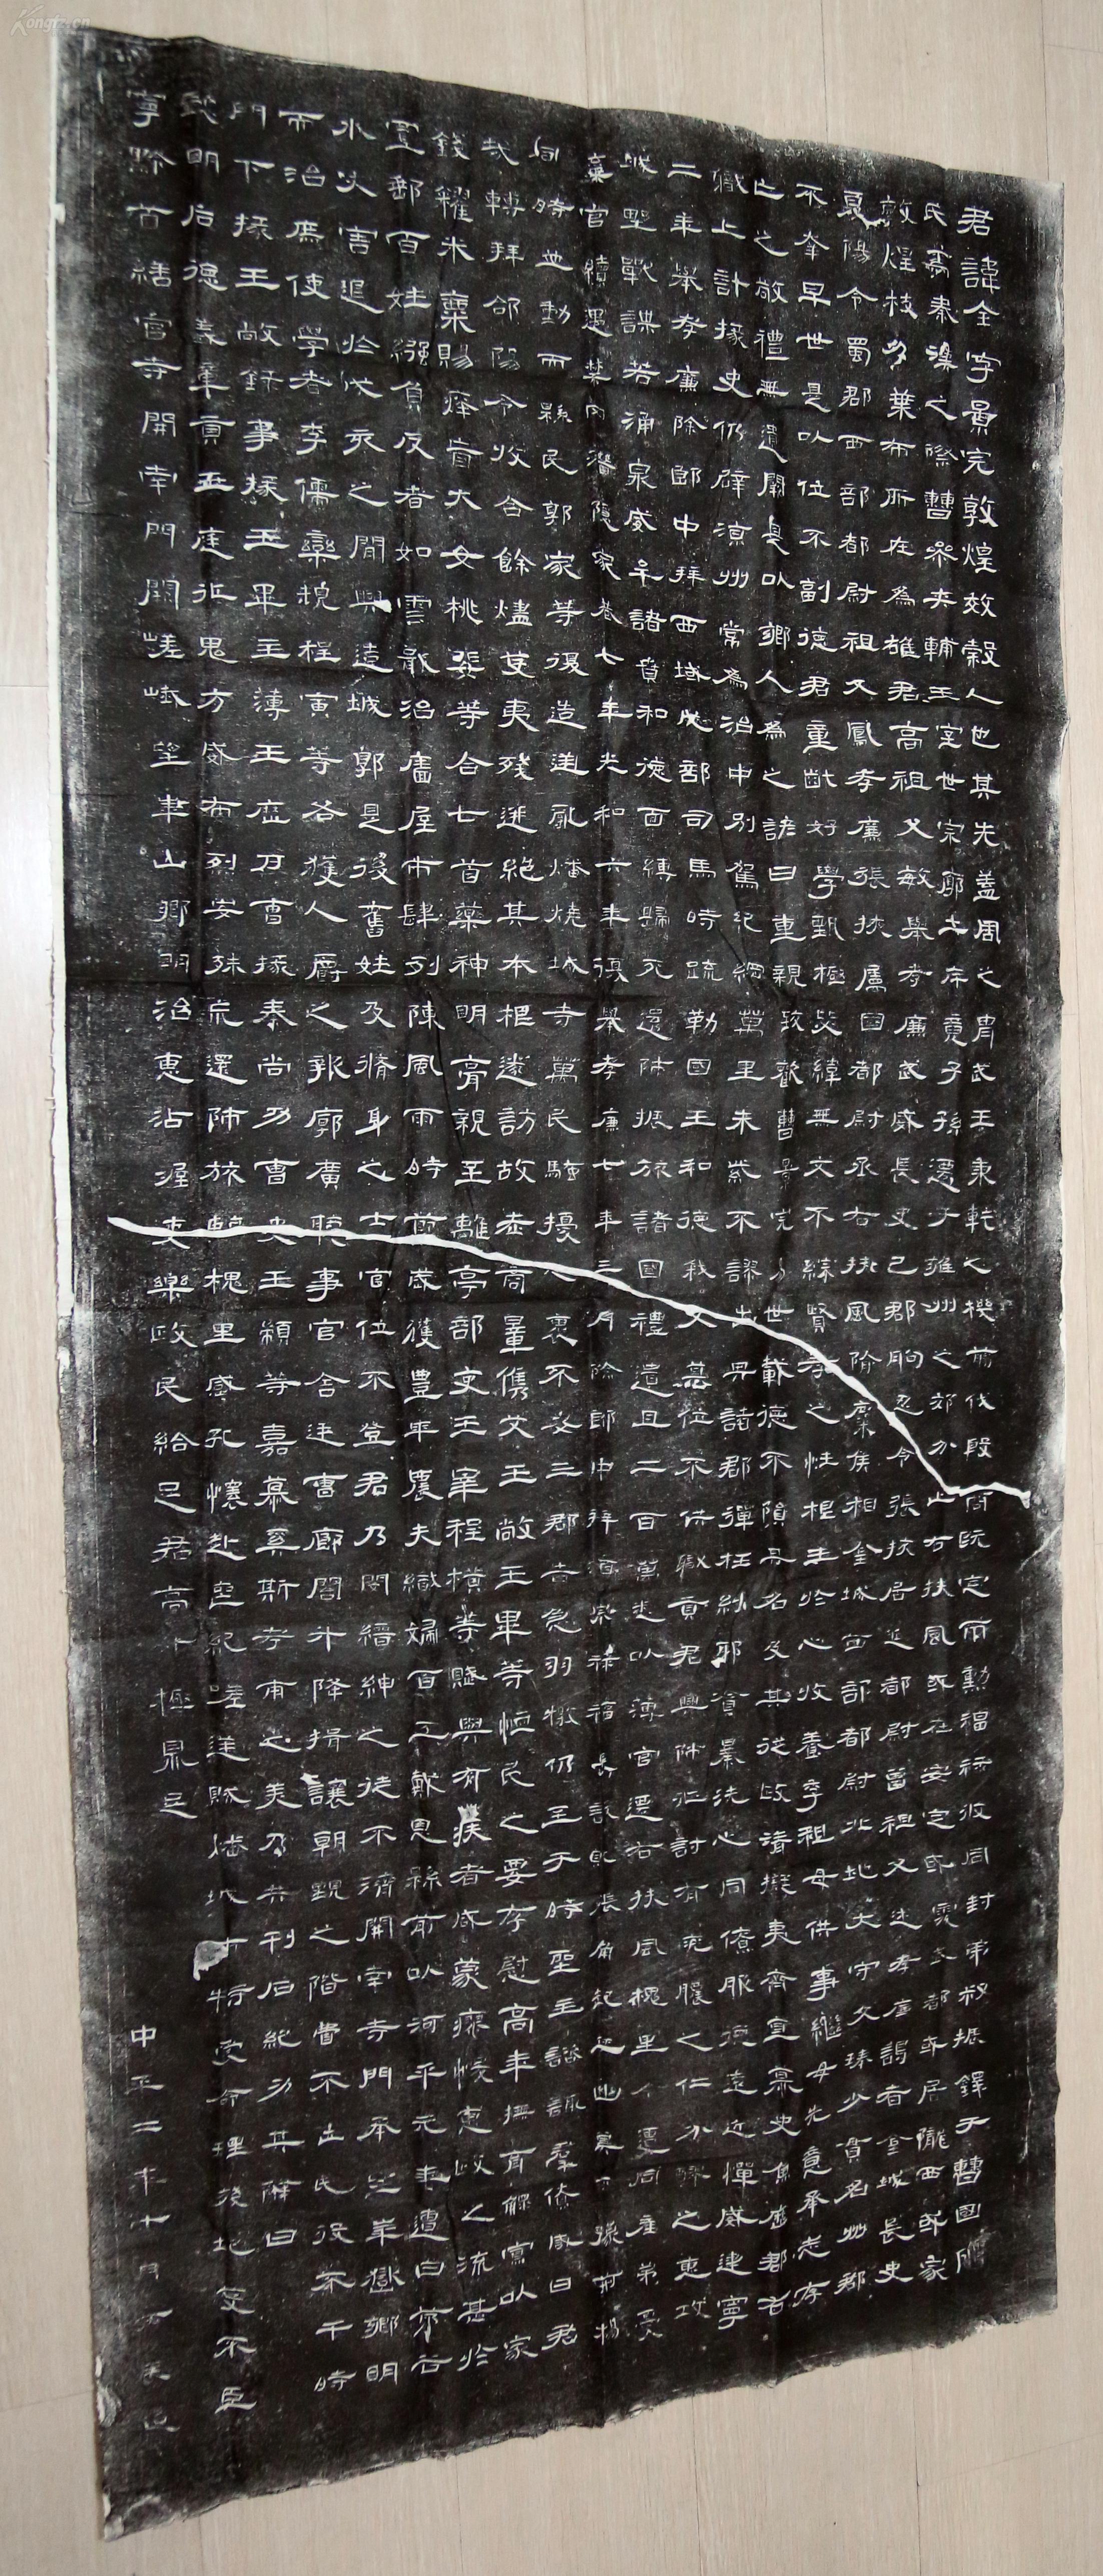 君諱全字景完敦煌效穀人也其先蓋周之胄武王秉乾之機翦伐殷商既定爾勳福祿攸同封弟叔振鐸于曹國因
氏焉秦漢之際曹參夾輔王室世宗廓土斥竟子孫遷于雍州之郊分止右扶風或在安定或處武都或居隴西或家
敦煌枝分葉布所在為雄君高祖父敏舉孝廉武威長史巴郡朐忍令張掖居延都尉曾祖父述孝廉謁者金城長史
夏陽令蜀郡西部都尉祖父鳳孝廉張掖屬國都尉丞右扶風隃麋侯相金城西部都尉北地太守父琫少貫名州郡
不幸早世是以位不副德君童齔好學甄極毖緯無文不綜賢孝之性根生於心收養季祖母供事繼母先意承志存
亡之敬禮無遺闕是以鄉人為之諺曰重親致歡曹景完易世載德不隕其名及其從政清擬夷齊直慕史魚歷郡右
職上計掾史仍辟涼州常為治中別駕紀綱萬里朱紫不謬出典諸郡彈枉糾邪貪暴洗心同僚服德遠近憚威建寧
二年舉孝廉除郎中拜西域戊部司馬時疏勒國王和德弒父篡位不供職貢君興師征討有吮膿之仁分醪之惠攻
城野戰謀若涌泉威牟諸賁和德面縛歸死還師振旅諸國禮遺且二百萬悉以薄官遷右扶風槐里令遭同產弟憂
棄官續遇禁网潛隱家巷七年光和六年復舉孝廉七年三月除郎中拜酒泉祿福長訞賊張角起兵幽冀兗豫荊楊
同時並動而縣民郭家等復造逆亂燔燒城寺萬民騷擾人裹不安三郡告急羽檄仍至于時聖主諮諏群僚咸曰君
哉轉拜郃陽令收合餘燼芟夷殘迸絕其本根遂訪故老商量儁艾王敞王畢等恤民之要存慰高年撫育鰥寡以家
錢糴米粟賜癃盲大女桃婓等合七首藥神明膏親至離亭部吏王宰程橫等賦與有疾者咸蒙瘳悛惠政之流甚於
置郵百姓繈負反者如雲戢治廧屋市肆列陳風雨時節歲獲豐年農夫織婦百工戴恩縣前以河平元年遭白茅谷
水災害退於戌亥之間興造城郭是後舊姓及脩身之士官位不登君乃閔縉紳之徒不濟開南寺門承望華嶽鄉明
而治庶使學者李儒欒規程寅等各獲人爵之報廓廣聽事官舍廷曹廊閤升降揖讓朝覲之階費不出民役不干時
門下掾王敞錄事掾王畢主簿王歷戶曹掾秦尚功曹史王顓等嘉慕奚斯考甫之美乃共刊石紀功其辭曰
懿明后德義章貢王庭征鬼方威布烈安殊荒還師旅臨槐里感孔懷赴喪紀嗟逆賊燔城市特受命理殘圮芟不臣
寧黔首繕官寺開南門闕嵯峨望華山鄉明治惠沾渥吏樂政民給足君高升極鼎足
中平二年十月丙辰造